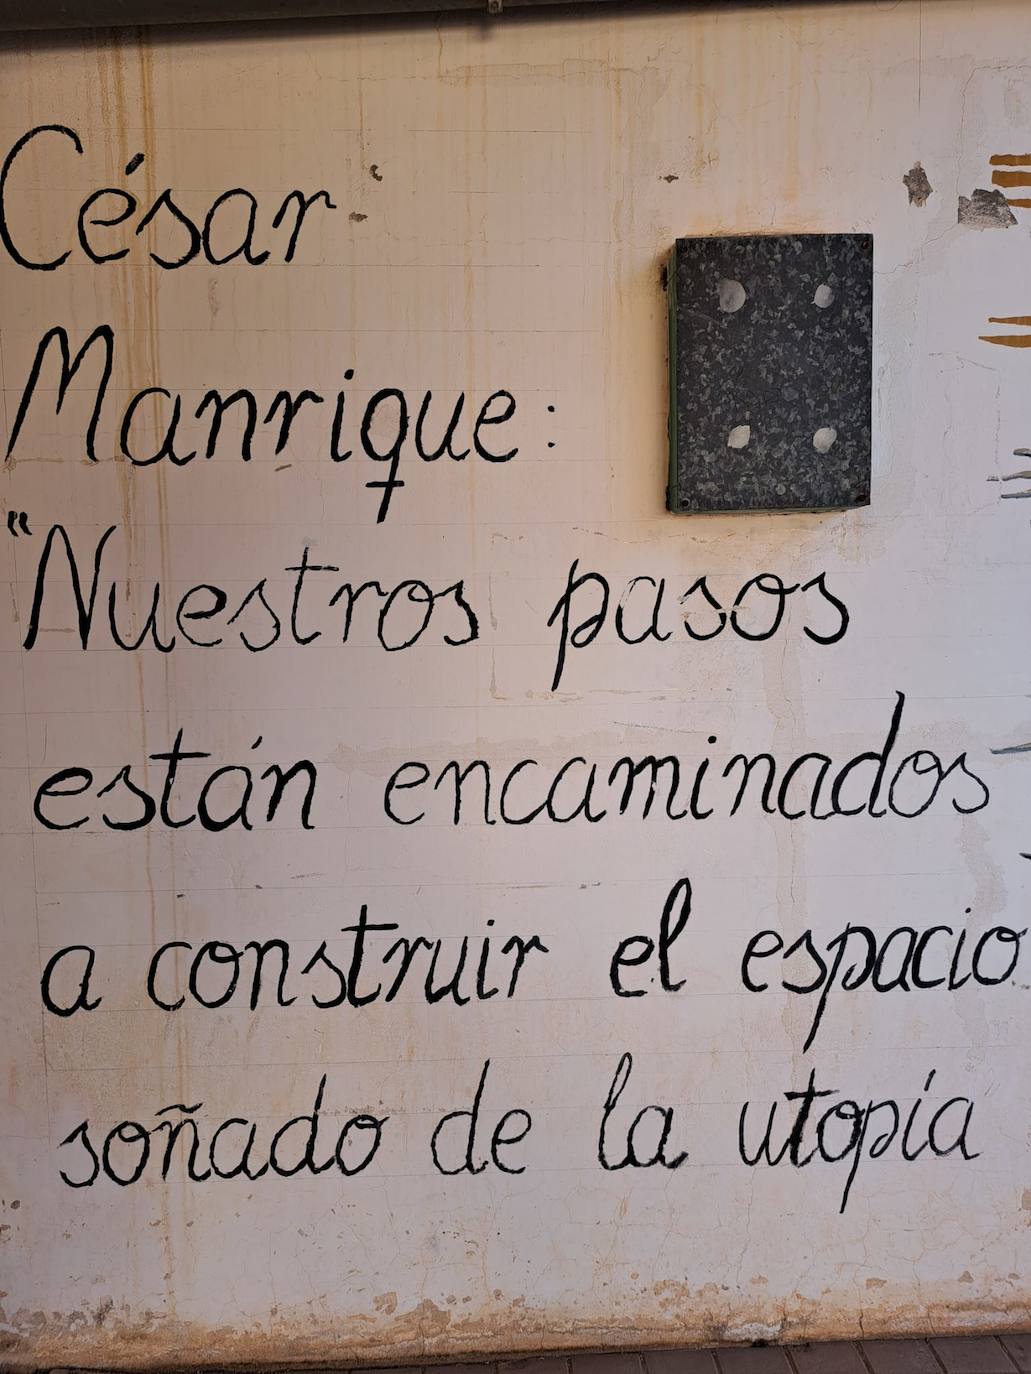 César
Manrique:
"Nuestros pasos
están encaminados
a construir el espacio
soñado de la utopía